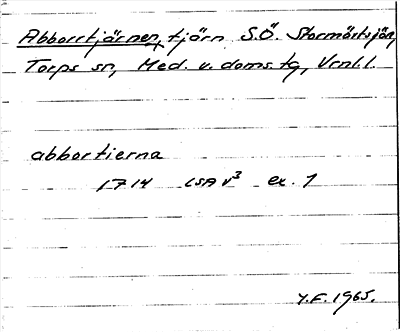 Abborrtjärnen, tjörn S.Ö. Stormörtsjön,
Torps sn, Med. v. doms. tg, Vrnl. l.
abbortierna
1714 LSA V³ ex. 1
Y.F. 1965.